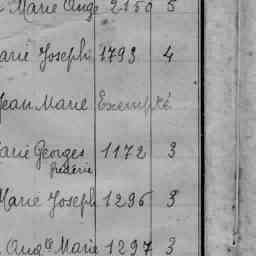 Marie Ange 2150 5
arie Joseph 1793 4
Jean Marie Exempté
arie Georges 1172 3
frédéric
Marie Joseph 1296 3
Aug.te Marie 1297 3